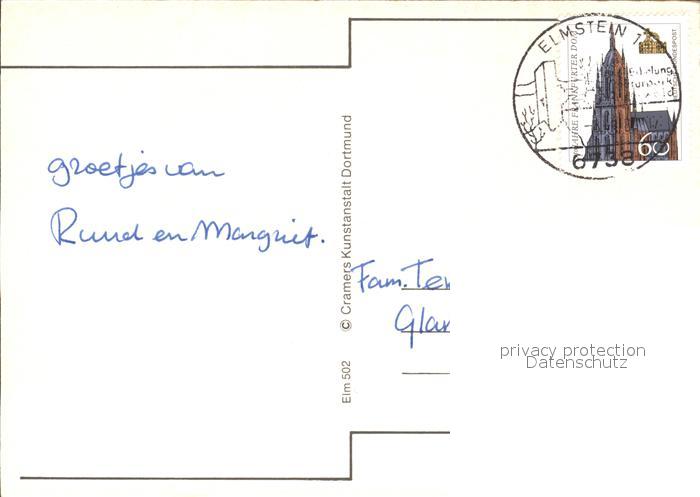 groetjes van
Ruud en Margriet.
© Cramers Kunstanstalt Dortmund
Elm 502
Fam. Ter
Glan
ELMSTEIN 1
6738
JAHRE FRANKFURTER DOM
60
privacy protection
Datenschutz